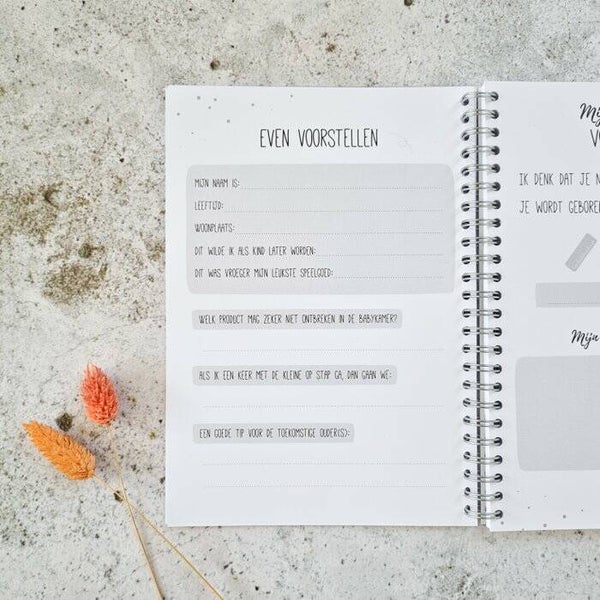 EVEN VOORSTELLEN
MIJN NAAM IS:
LEEFTIJD:
WOONPLAATS:
DIT WILDE IK ALS KIND LATER WORDEN:
DIT WAS VROEGER MIJN LEUKSTE SPEELGOED:
WELK PRODUCT MAG ZEKER NIET ONTBREKEN IN DE BABYKAMER?
ALS IK EEN KEER MET DE KLEINE OP STAP GA, DAN GAAN WE:
EEN GOEDE TIP VOOR DE TOEKOMSTIGE OUDER(S):
IK DENK DAT JE
JE WORDT GEBOREN
Mijn